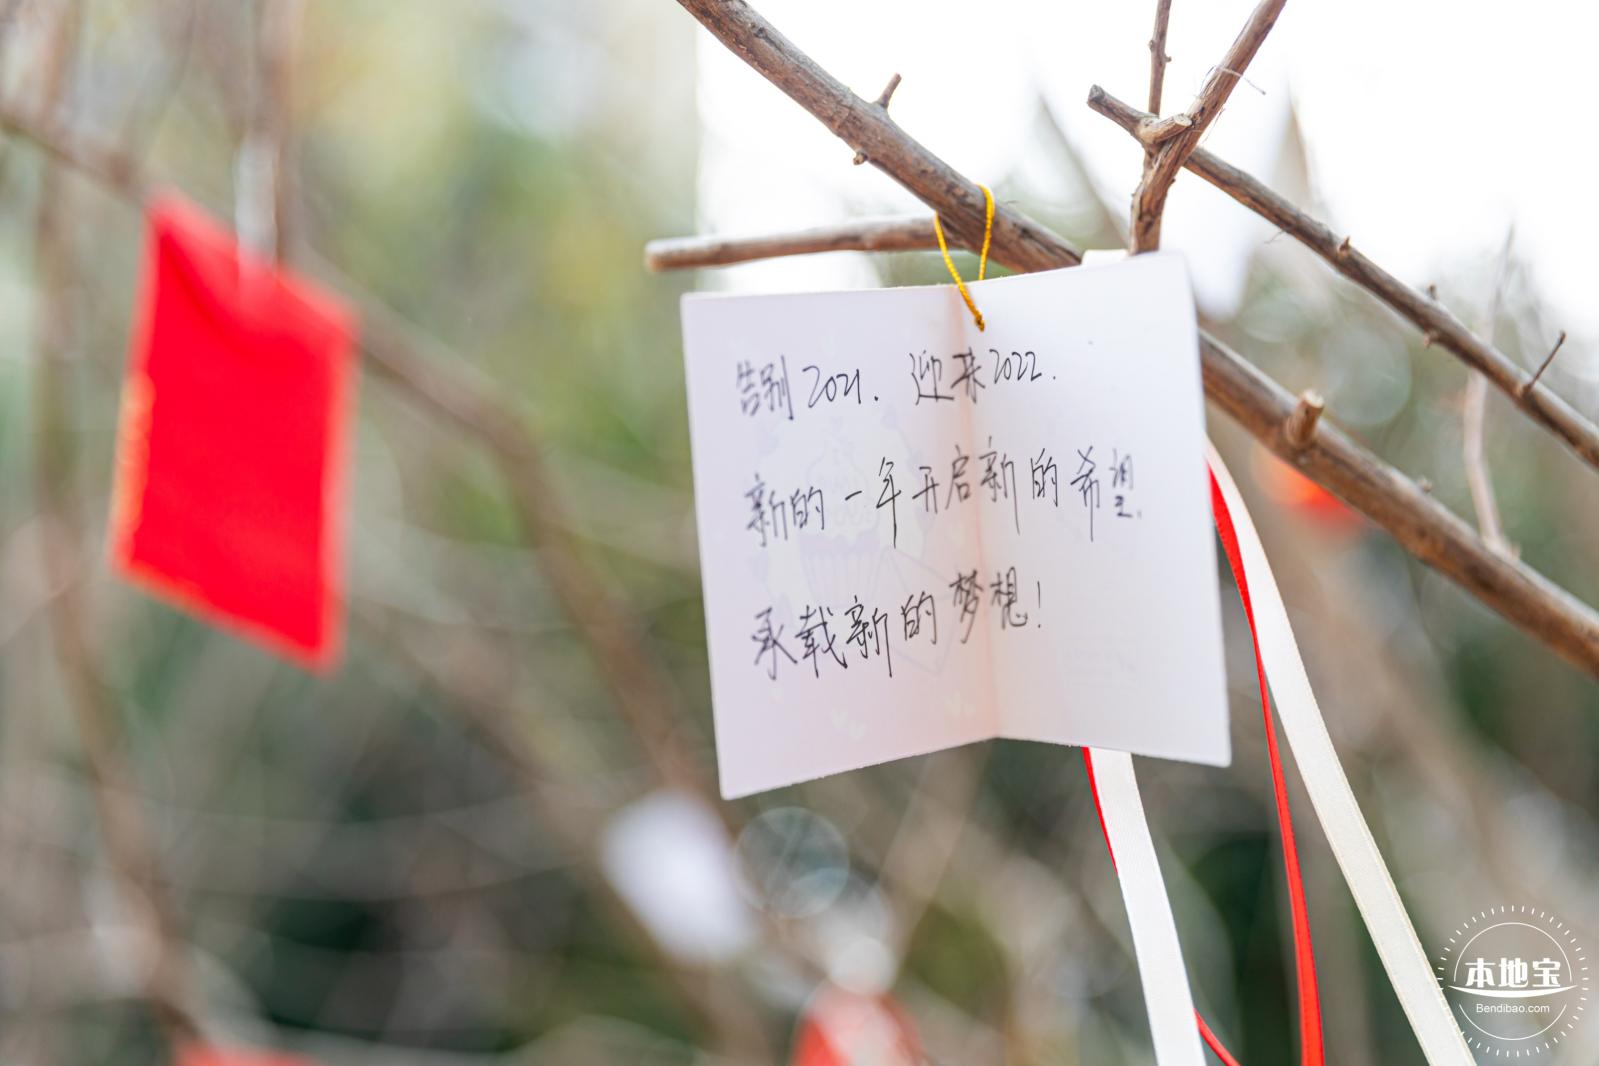 告别2021. 迎来2022.
新的一年开启新的希望.
承载新的梦想!
本地宝
Bendibao.com